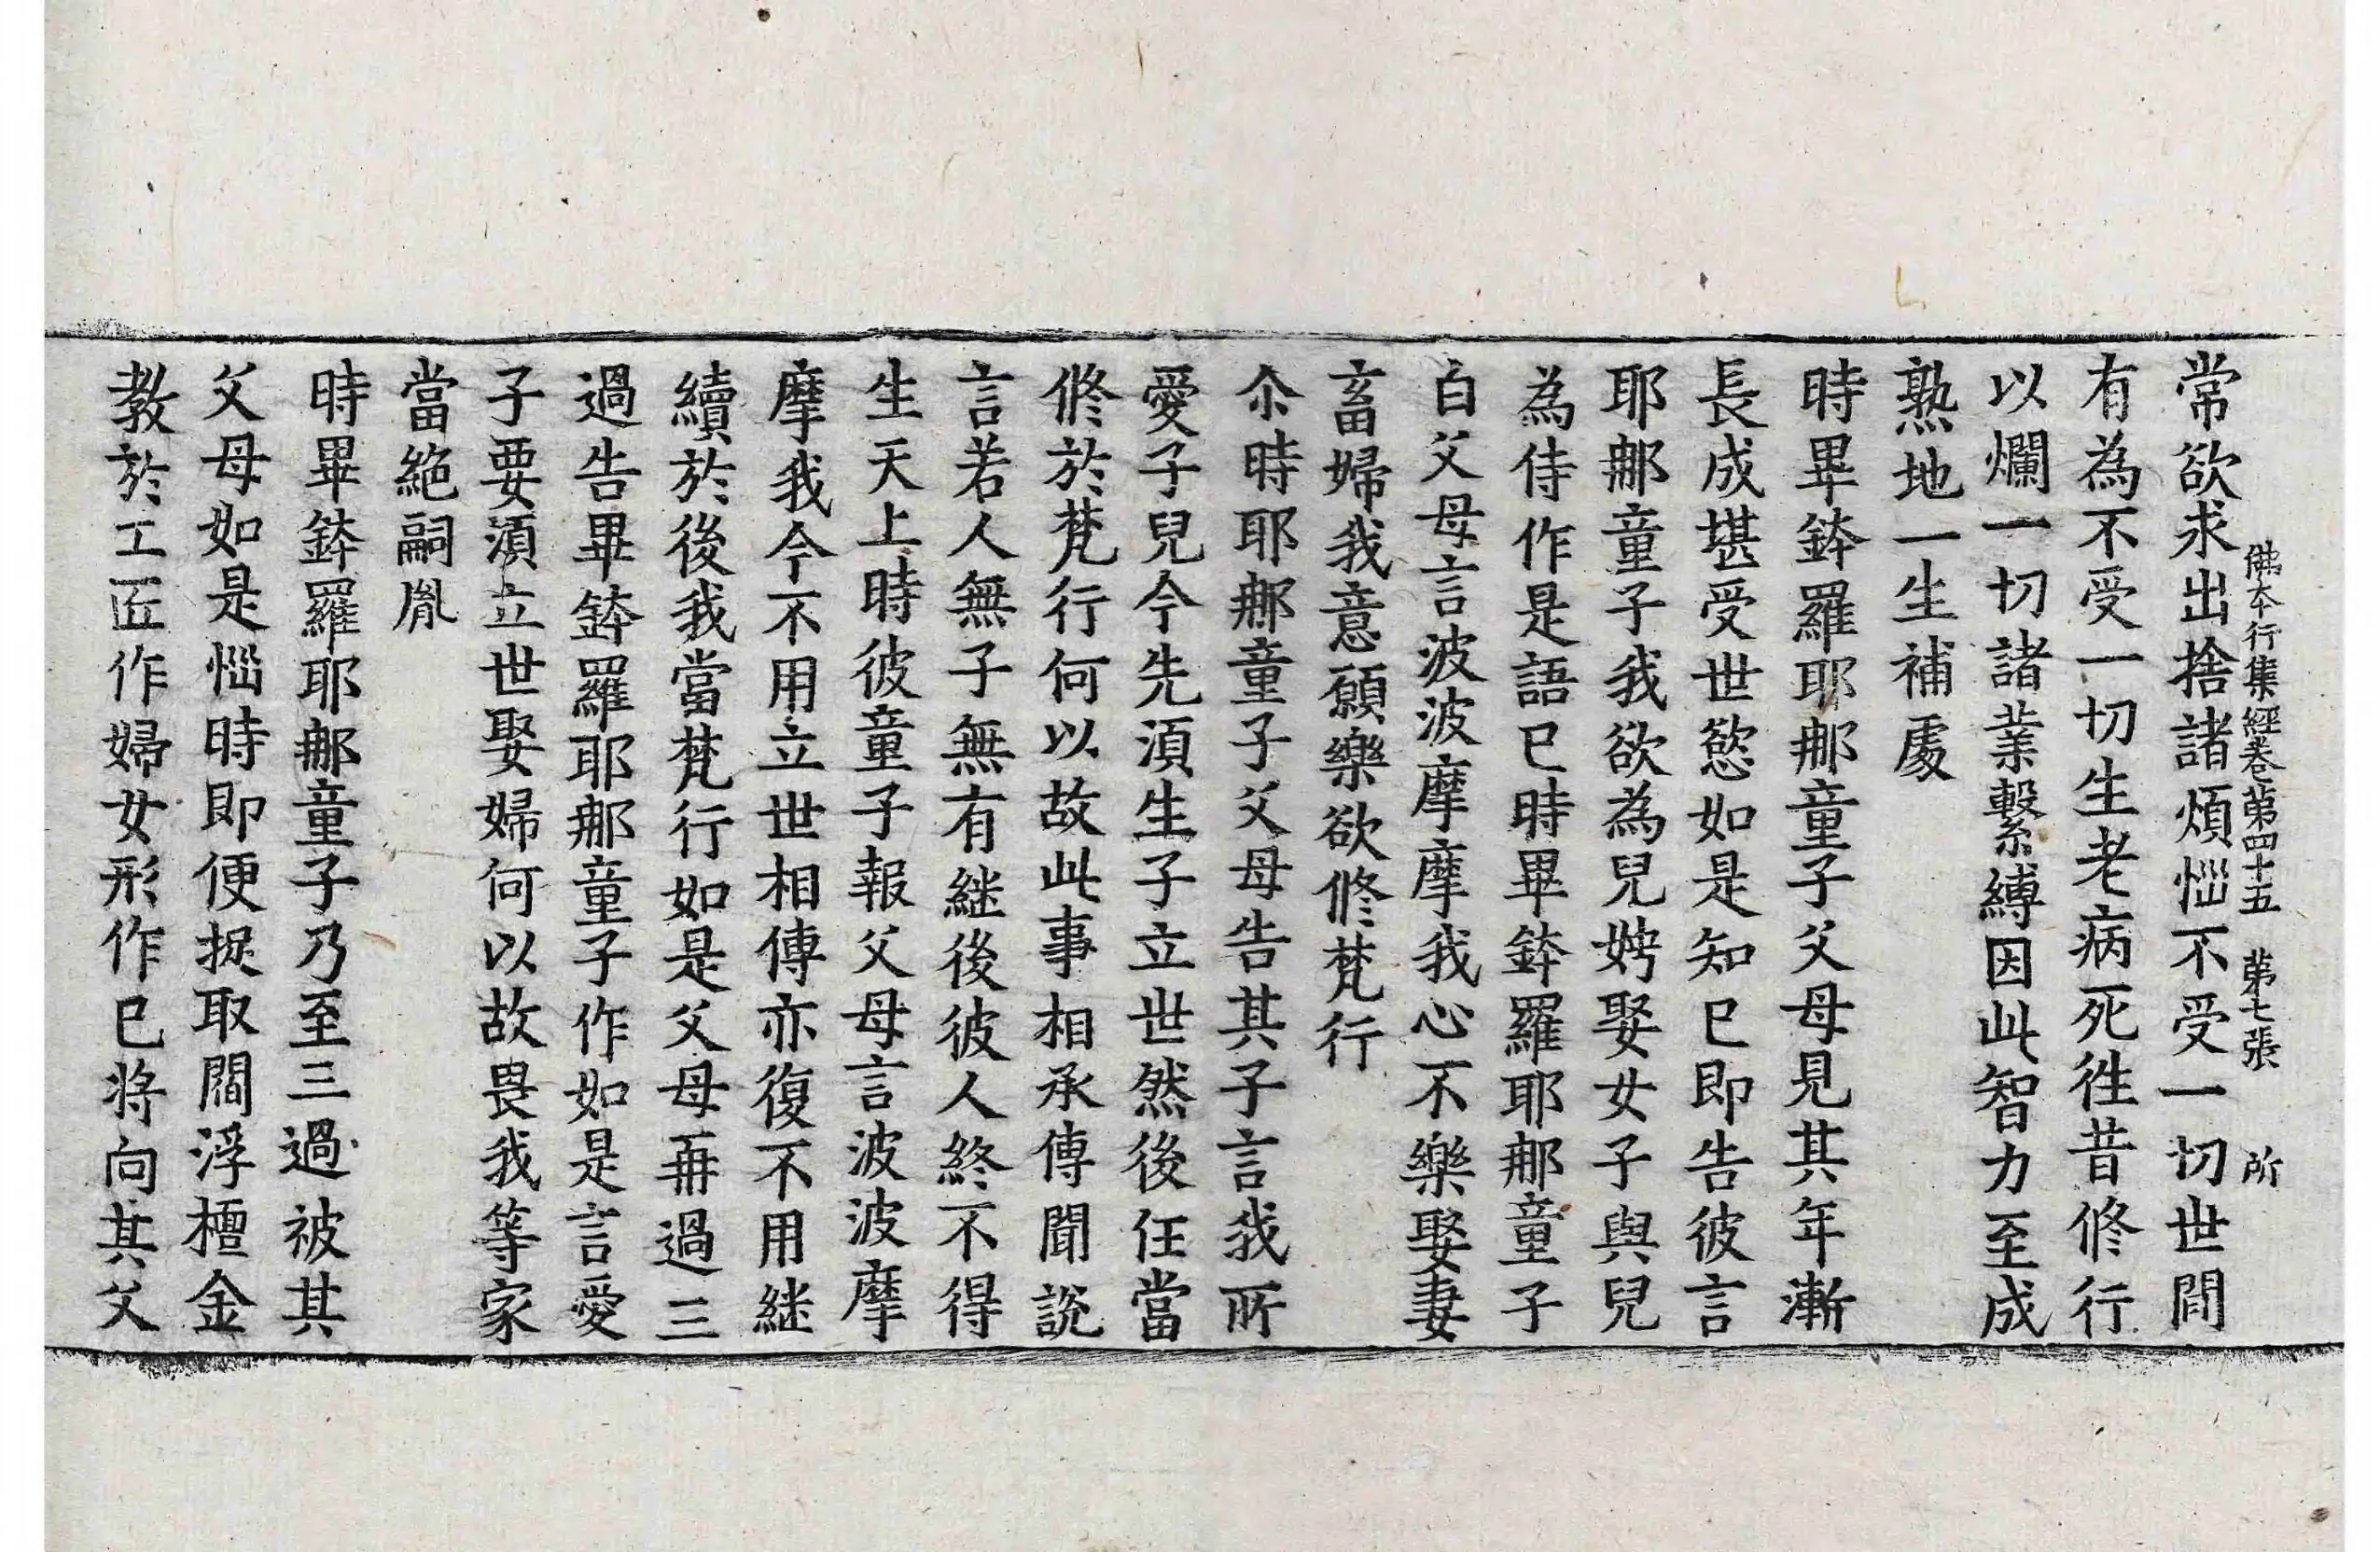 佛本行集經卷第四十五 第七張 所
常欲求出捨諸煩惱不受一切世間
有為不受一切生老病死徃昔修行
以爛一切諸業繫縛因此智力至成
熟地一生補處
時畢鉢羅耶那童子父母見其年漸
長成堪受世慾如是知已即告彼言
耶那童子我欲為兒娉娶女子與兒
為侍作是語已時畢鉢羅耶那童子
白父母言波波摩摩我心不樂娶妻
畜婦我意願樂欲修梵行
尒時耶那童子父母告其子言我所
愛子兒今先湏生子立世然後任當
修於梵行何以故此事相承傳聞說
言若人無子無有継後彼人終不得
生天上時彼童子報父母言波波摩
摩我今不用立世相傳亦復不用継
續於後我當梵行如是父母再過三
過告畢鉢羅耶那童子作如是言愛
子要湏立世娶婦何以故畏我等家
當絕嗣胤
時畢鉢羅耶那童子乃至三過被其
父母如是惱時即便捉取閻浮檀金
教於工匠作婦女形作已將向其父